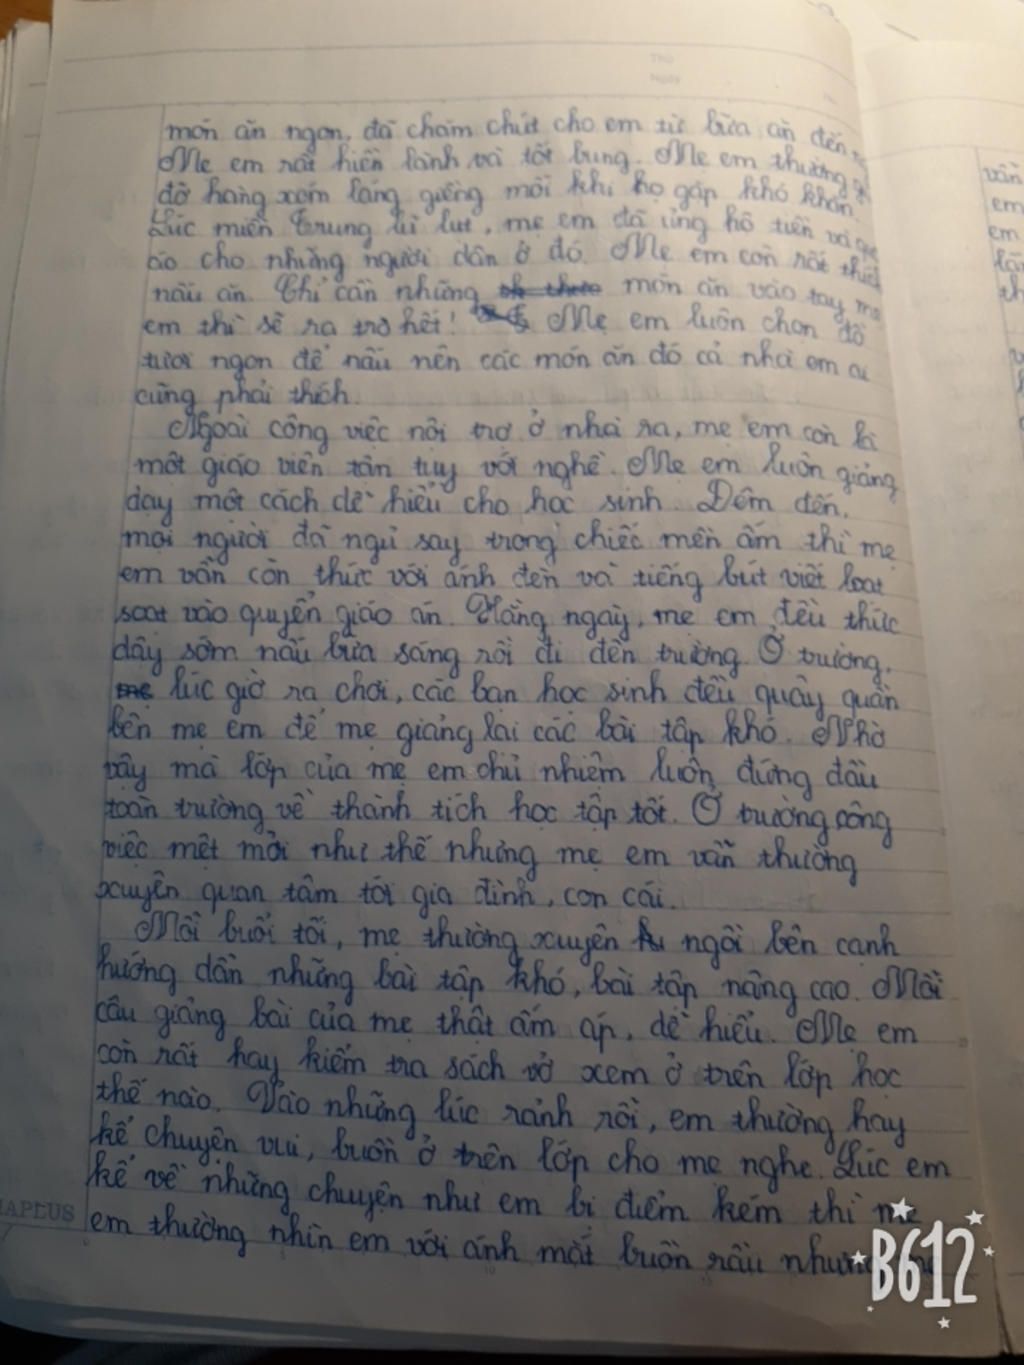 Thứ
Ngày
món ăn ngon, đã chăm chút cho em từ bữa ăn đến
Mẹ em rất hiền lành và tốt bụng. Mẹ em thường
đỡ hàng xóm láng giềng mỗi khi họ gặp khó khăn.
Lúc miền Trung lũ lụt, mẹ em đã ủng hộ tiền và
áo cho những người dân ở đó. Mẹ em còn rất
nấu ăn. Chỉ cần những món ăn vào tay mẹ
em thì sẽ ra trò hết! Mẹ em luôn chọn đồ
tươi ngon để nấu nên các món ăn đó cả nhà em ai
cũng phải thích.
Ngoài công việc nội trợ ở nhà ra, mẹ em còn là
một giáo viên tận tụy với nghề. Mẹ em luôn giảng
dạy một cách dễ hiểu cho học sinh. Đêm đến,
mọi người đã ngủ say trong chiếc mền ấm thì mẹ
em vẫn còn thức với ánh đèn và tiếng bút viết loạt
soạt vào quyển giáo án. Hằng ngày, mẹ em đều thức
dậy sớm nấu bữa sáng rồi đi đến trường. Ở trường,
lúc giờ ra chơi, các bạn học sinh đều quây quần
bên mẹ em để mẹ giảng lại các bài tập khó. Nhờ
vậy mà lớp của mẹ em chủ nhiệm luôn đứng đầu
toàn trường về thành tích học tập tốt. Ở trường công
việc mệt mỏi như thế nhưng mẹ em vẫn thường
xuyên quan tâm tới gia đình, con cái.
Mỗi buổi tối, mẹ thường xuyên ngồi bên cạnh
hướng dẫn những bài tập khó, bài tập nâng cao. Mỗi
câu giảng bài của mẹ thật ấm áp, dễ hiểu. Mẹ em
còn rất hay kiểm tra sách vở xem ở trên lớp học
thế nào. Vào những lúc rảnh rỗi, em thường hay
kể chuyện vui, buồn ở trên lớp cho mẹ nghe. Lúc em
kể về những chuyện như em bị điểm kém thì mẹ
em thường nhìn em với ánh mắt buồn rầu nhưng
B612
vẫn
em
em